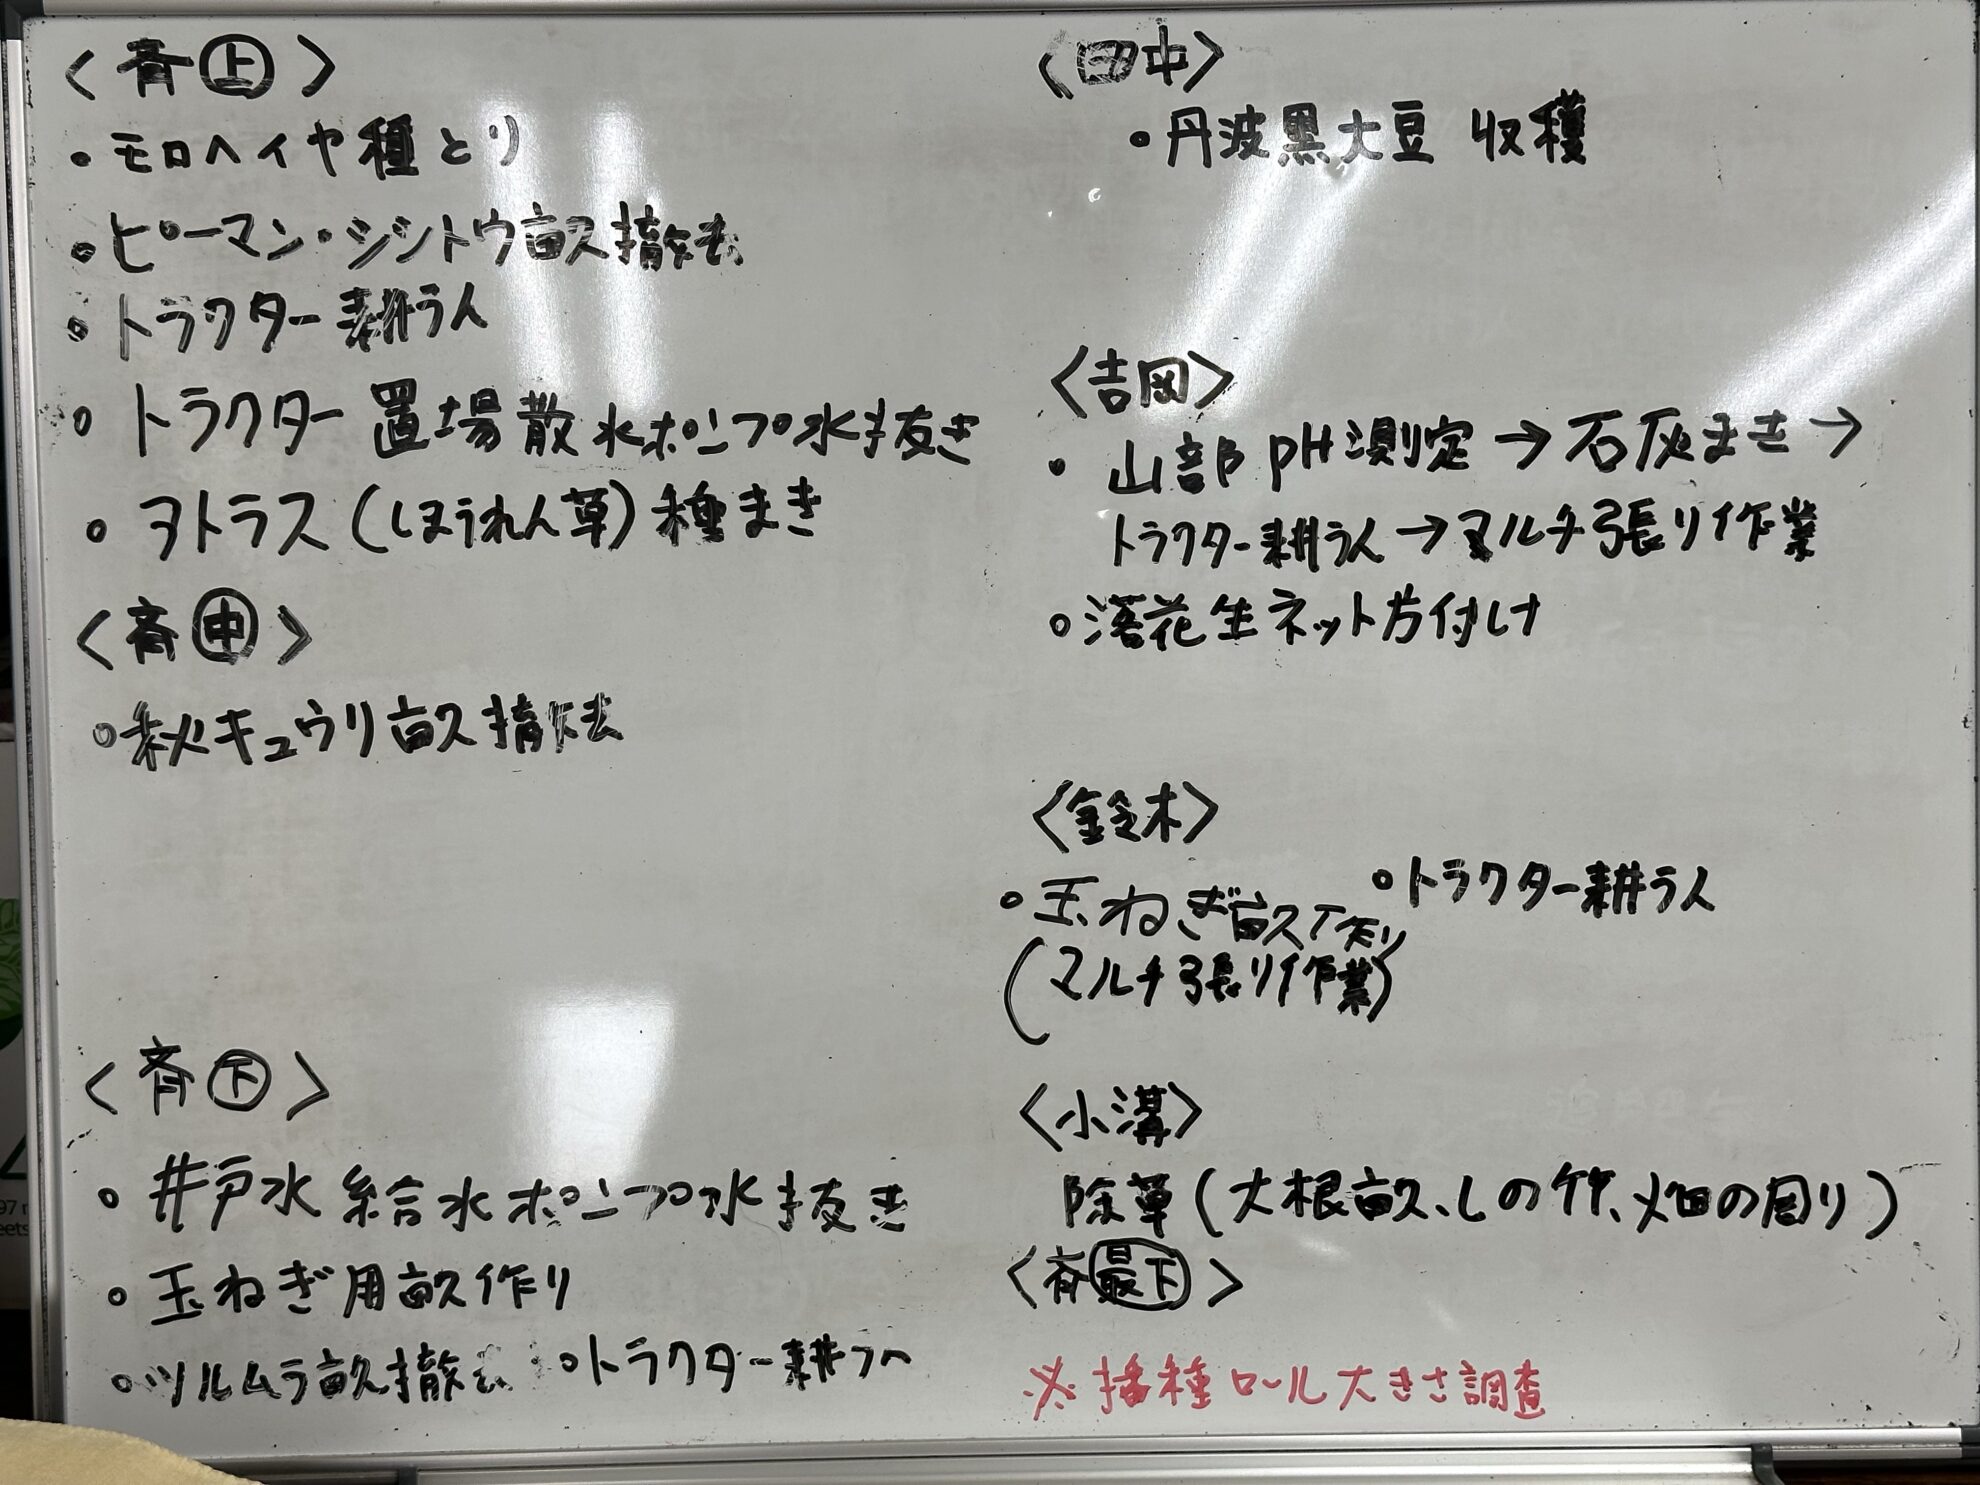 〈斉㊤〉
・モロヘイヤ種とり
・ピーマン・シシトウ畝撤去
・トラクター耕うん
・トラクター置場散水ポンプ水抜き
・アトラス(ほうれん草)種まき
〈斉㊥〉
・秋キュウリ畝撤去
〈斉㊦〉
・井戸水給水ポンプ水抜き
・玉ねぎ用畝作り
・ツルムラ畝撤去 ・トラクター耕うん
〈田中〉
・丹波黒大豆 収穫
〈吉岡〉
・山部pH測定→石灰まき→
トラクター耕うん→マルチ張り作業
・落花生ネット片付け
〈鈴木〉
・玉ねぎ畝作り ・トラクター耕うん
(マルチ張り作業)
〈小溝〉
除草(大根畝、しの竹、畑の周り)
〈斉最下〉
※播種ロール大きさ調査